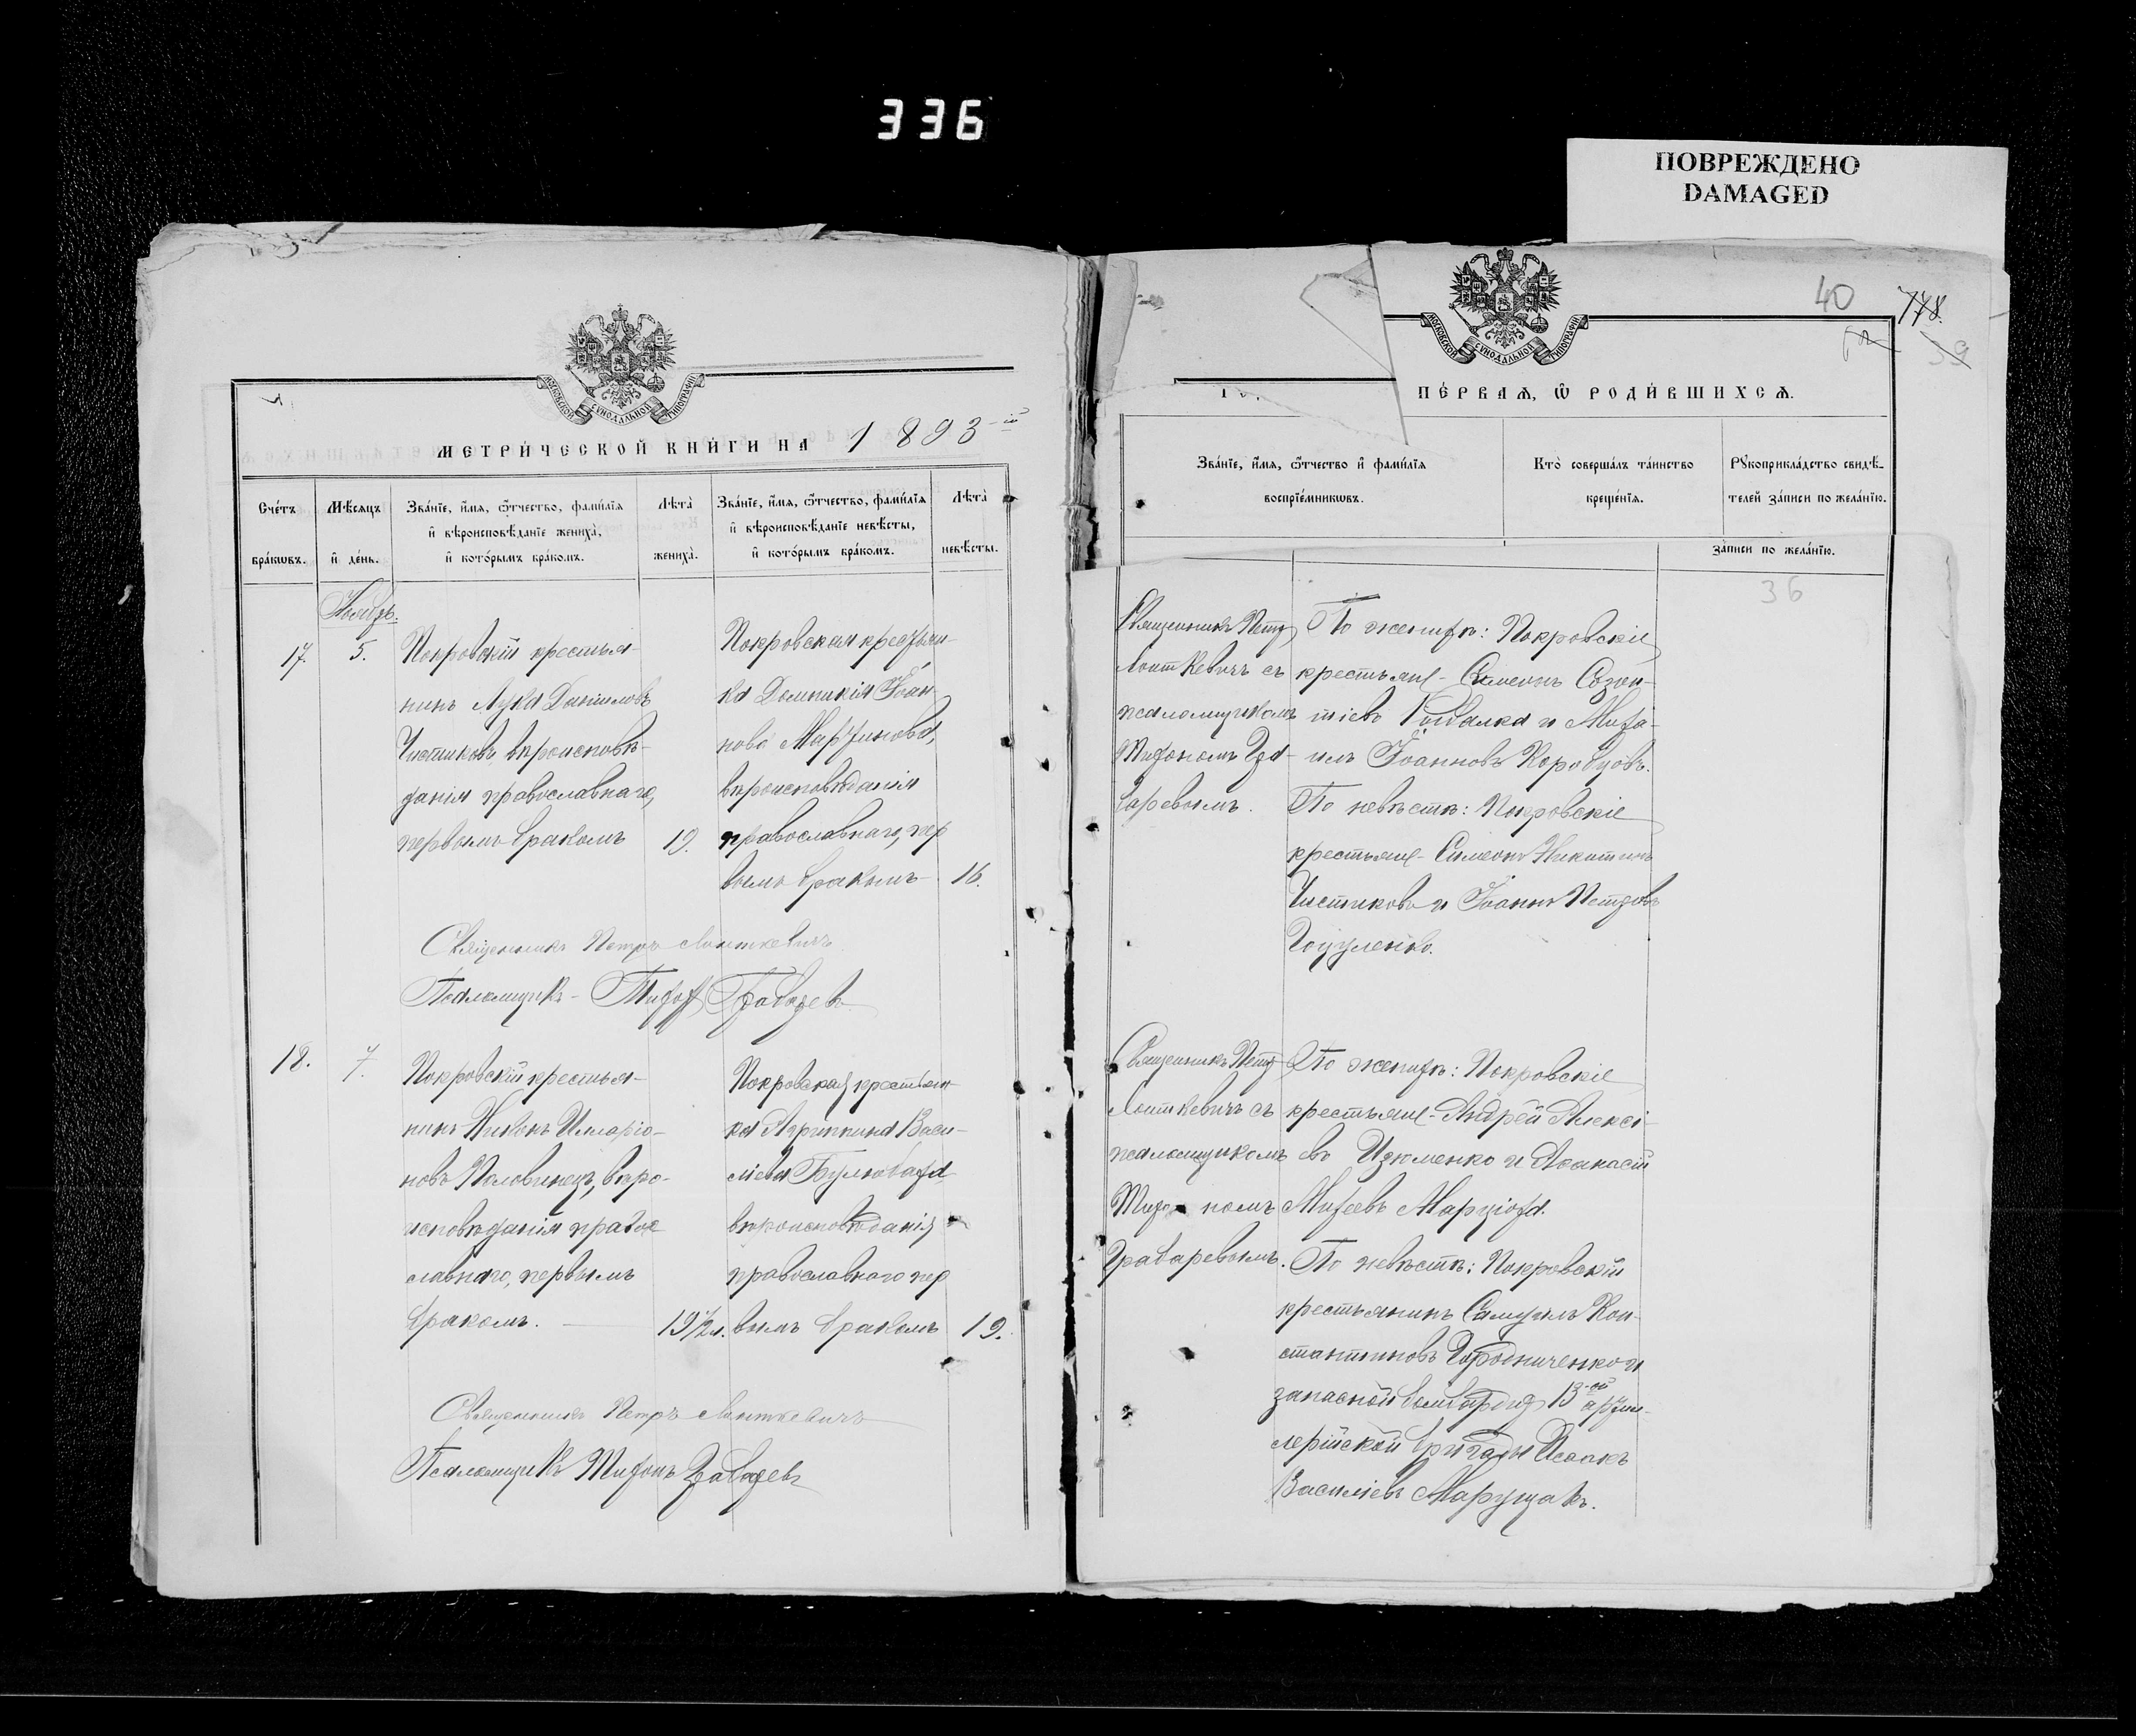 336
ПОВРЕЖДЕНО
DAMAGED
МОСКОВСКОЙ СѴНОДАЛЬНОЙ ТИПОГРАФІИ
МЕТРИ́ЧЕСКОЙ КНИ́ГИ НА 1893-ій
Сче́тъ бра́кѡвъ.
Мѣ́сяцъ и҆ де́нь.
Зва́нїе, и҆́мѧ, ѻ҆́тчество, фами́лїѧ
и҆ вѣроисповѣ́данїе жениха̀,
и҆ кото́рымъ бра́комъ.
Лѣ́та̀ жениха̀.
Зва́нїе, и҆́мѧ, ѻ҆́тчество, фами́лїѧ
и҆ вѣроисповѣ́данїе невѣ́сты,
и҆ кото́рымъ бра́комъ.
Лѣ́та̀ невѣ́сты.
Ноябрь.
17.
5.
Покровскій крестья-
нинъ Лука Даніиловъ
Чистиковъ вѣроисповѣ-
данія православнаго,
первымъ бракомъ
19.
Покровская крестьян-
ка Домникія Іоан-
нова Мартинова,
вѣроисповѣданія
православнаго, пер
вымъ бракомъ
16.
Священникъ Петръ Лонткевичъ
Псаломщикъ - Тихон Грабарев
18.
7.
Покровскій крестья-
нинъ Никонъ Иларіо-
новъ Половинецъ, вѣро-
исповѣданія право-
славнаго, первымъ
бракомъ.
19½ л.
Покровская крестьян-
ка Агриппина Васи-
ліева
вѣроисповѣданія
православнаго пер
вымъ бракомъ
19.
Священникъ Петръ Лонткевичъ
Псаломщикъ Тихонъ Грабаревъ
40
778.
39
МОСКОВСКОЙ СѴНОДАЛЬНОЙ ТИПОГРАФІИ
ПЕ́РВАѦ, Ѡ҆ РОДИ́ВШИХСѦ.
Зва́нїе, и҆́мѧ, ѻ҆́тчество и҆ фами́лїѧ
воспрїе́мникѡвъ.
Кто̀ соверша́лъ та́инство
креще́нїѧ.
Рꙋкоприкла́дство свидѣ́-
телей за́писи по жела́нїю.
за́писи по жела́нїю.
36
Священникъ Петръ
Лонткевичъ съ
псаломщикомъ
Тихономъ Гра-
баревымъ.
По женихѣ: Покровскіе
крестьяне - Симеонъ Созон-
тіевъ и Миха-
илъ Іоанновъ Коробцовъ.
По невѣстѣ: Покровскіе
крестьяне - Симеонъ Никитинъ
Чистиковъ и Іоаннъ Петровъ
Гоцуленко.
Священникъ Петръ
Лонткевичъ съ
псаломщикомъ
Тихо-номъ
Грабаревымъ.
По женихѣ: Покровскіе
крестьяне - Андрей Алексі-
евъ Изюменко и Аѳанасій
Михеевъ
По невѣстѣ: Покровскій
крестьянинъ Самуилъ Кон-
стантиновъ Городниченко и
запасной бомбардиръ 13-ой артил-
лерійской бригады Исаакъ
Василіевъ Марущакъ.